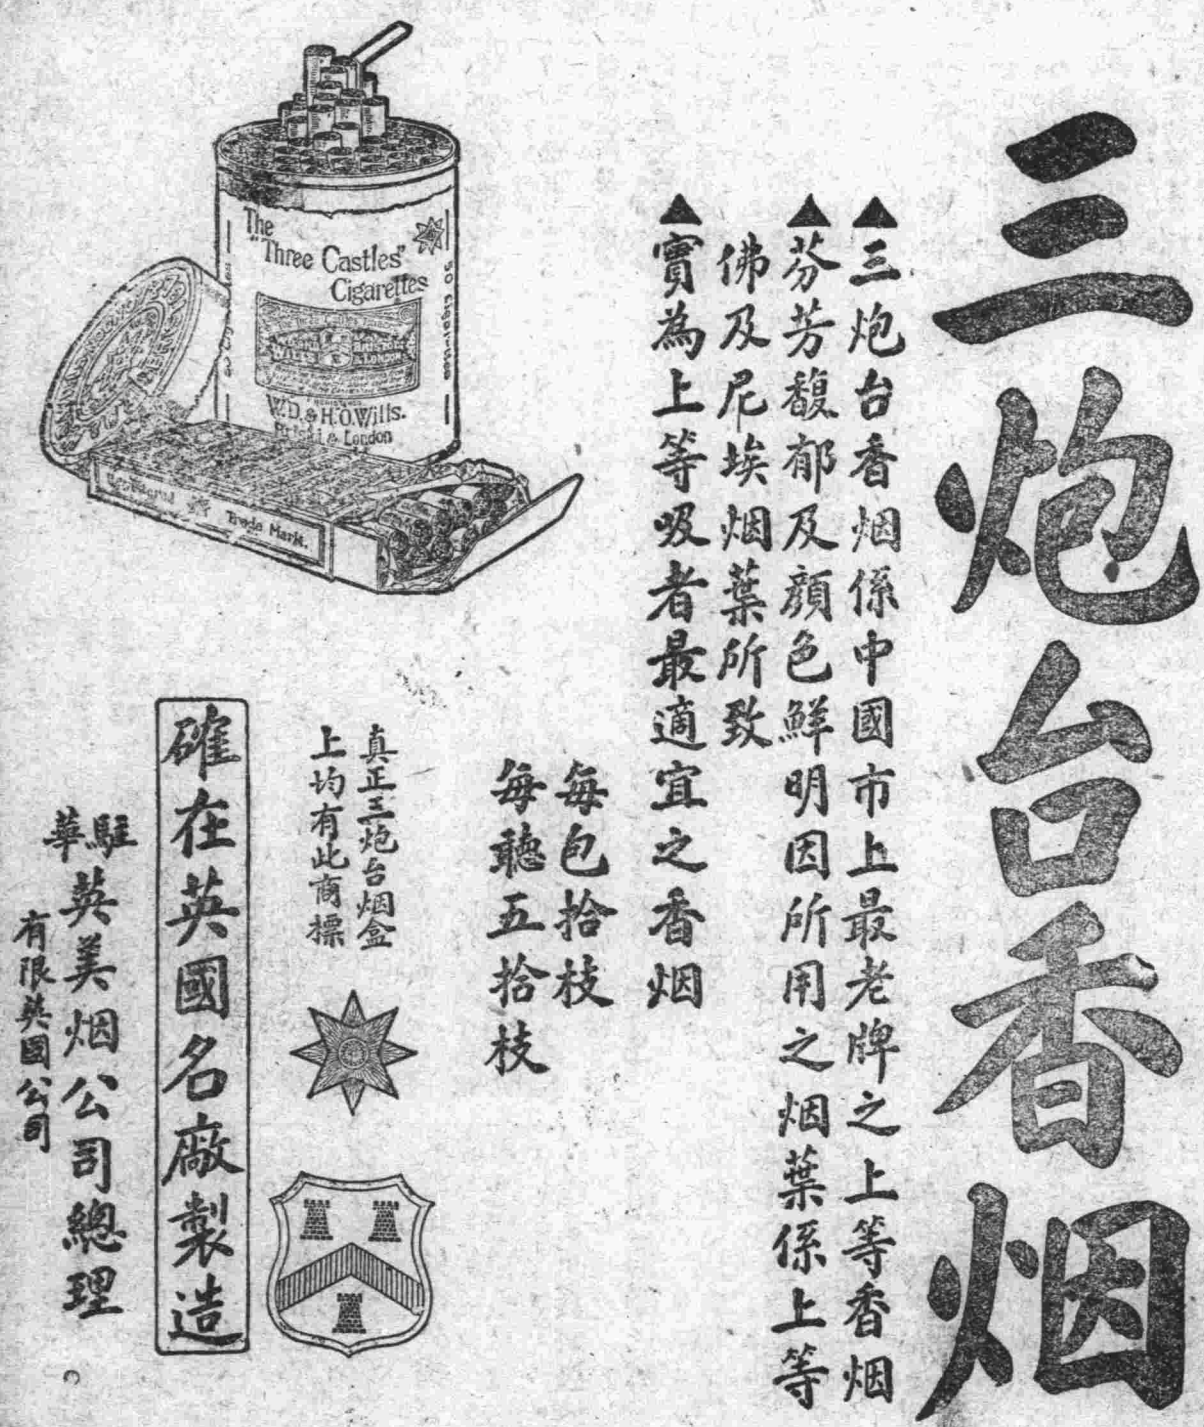 三炮台香烟
▲三炮台香烟係中國市上最老牌之上等香烟
▲芬芳馥郁及顏色鮮明因所用之烟葉係上等
佛及尼埃烟葉所致
▲實為上等吸者最適宜之香烟
每包拾枝
每聽五拾枝
The
"Three Castles"
Cigarettes
50 Cigarettes
W.D. & H.O. Wills.
Bristol & London
Trade Mark.
真正三炮台烟盒
上均有此商標
確在英國名廠製造
駐華英美烟公司總理
有限英國公司